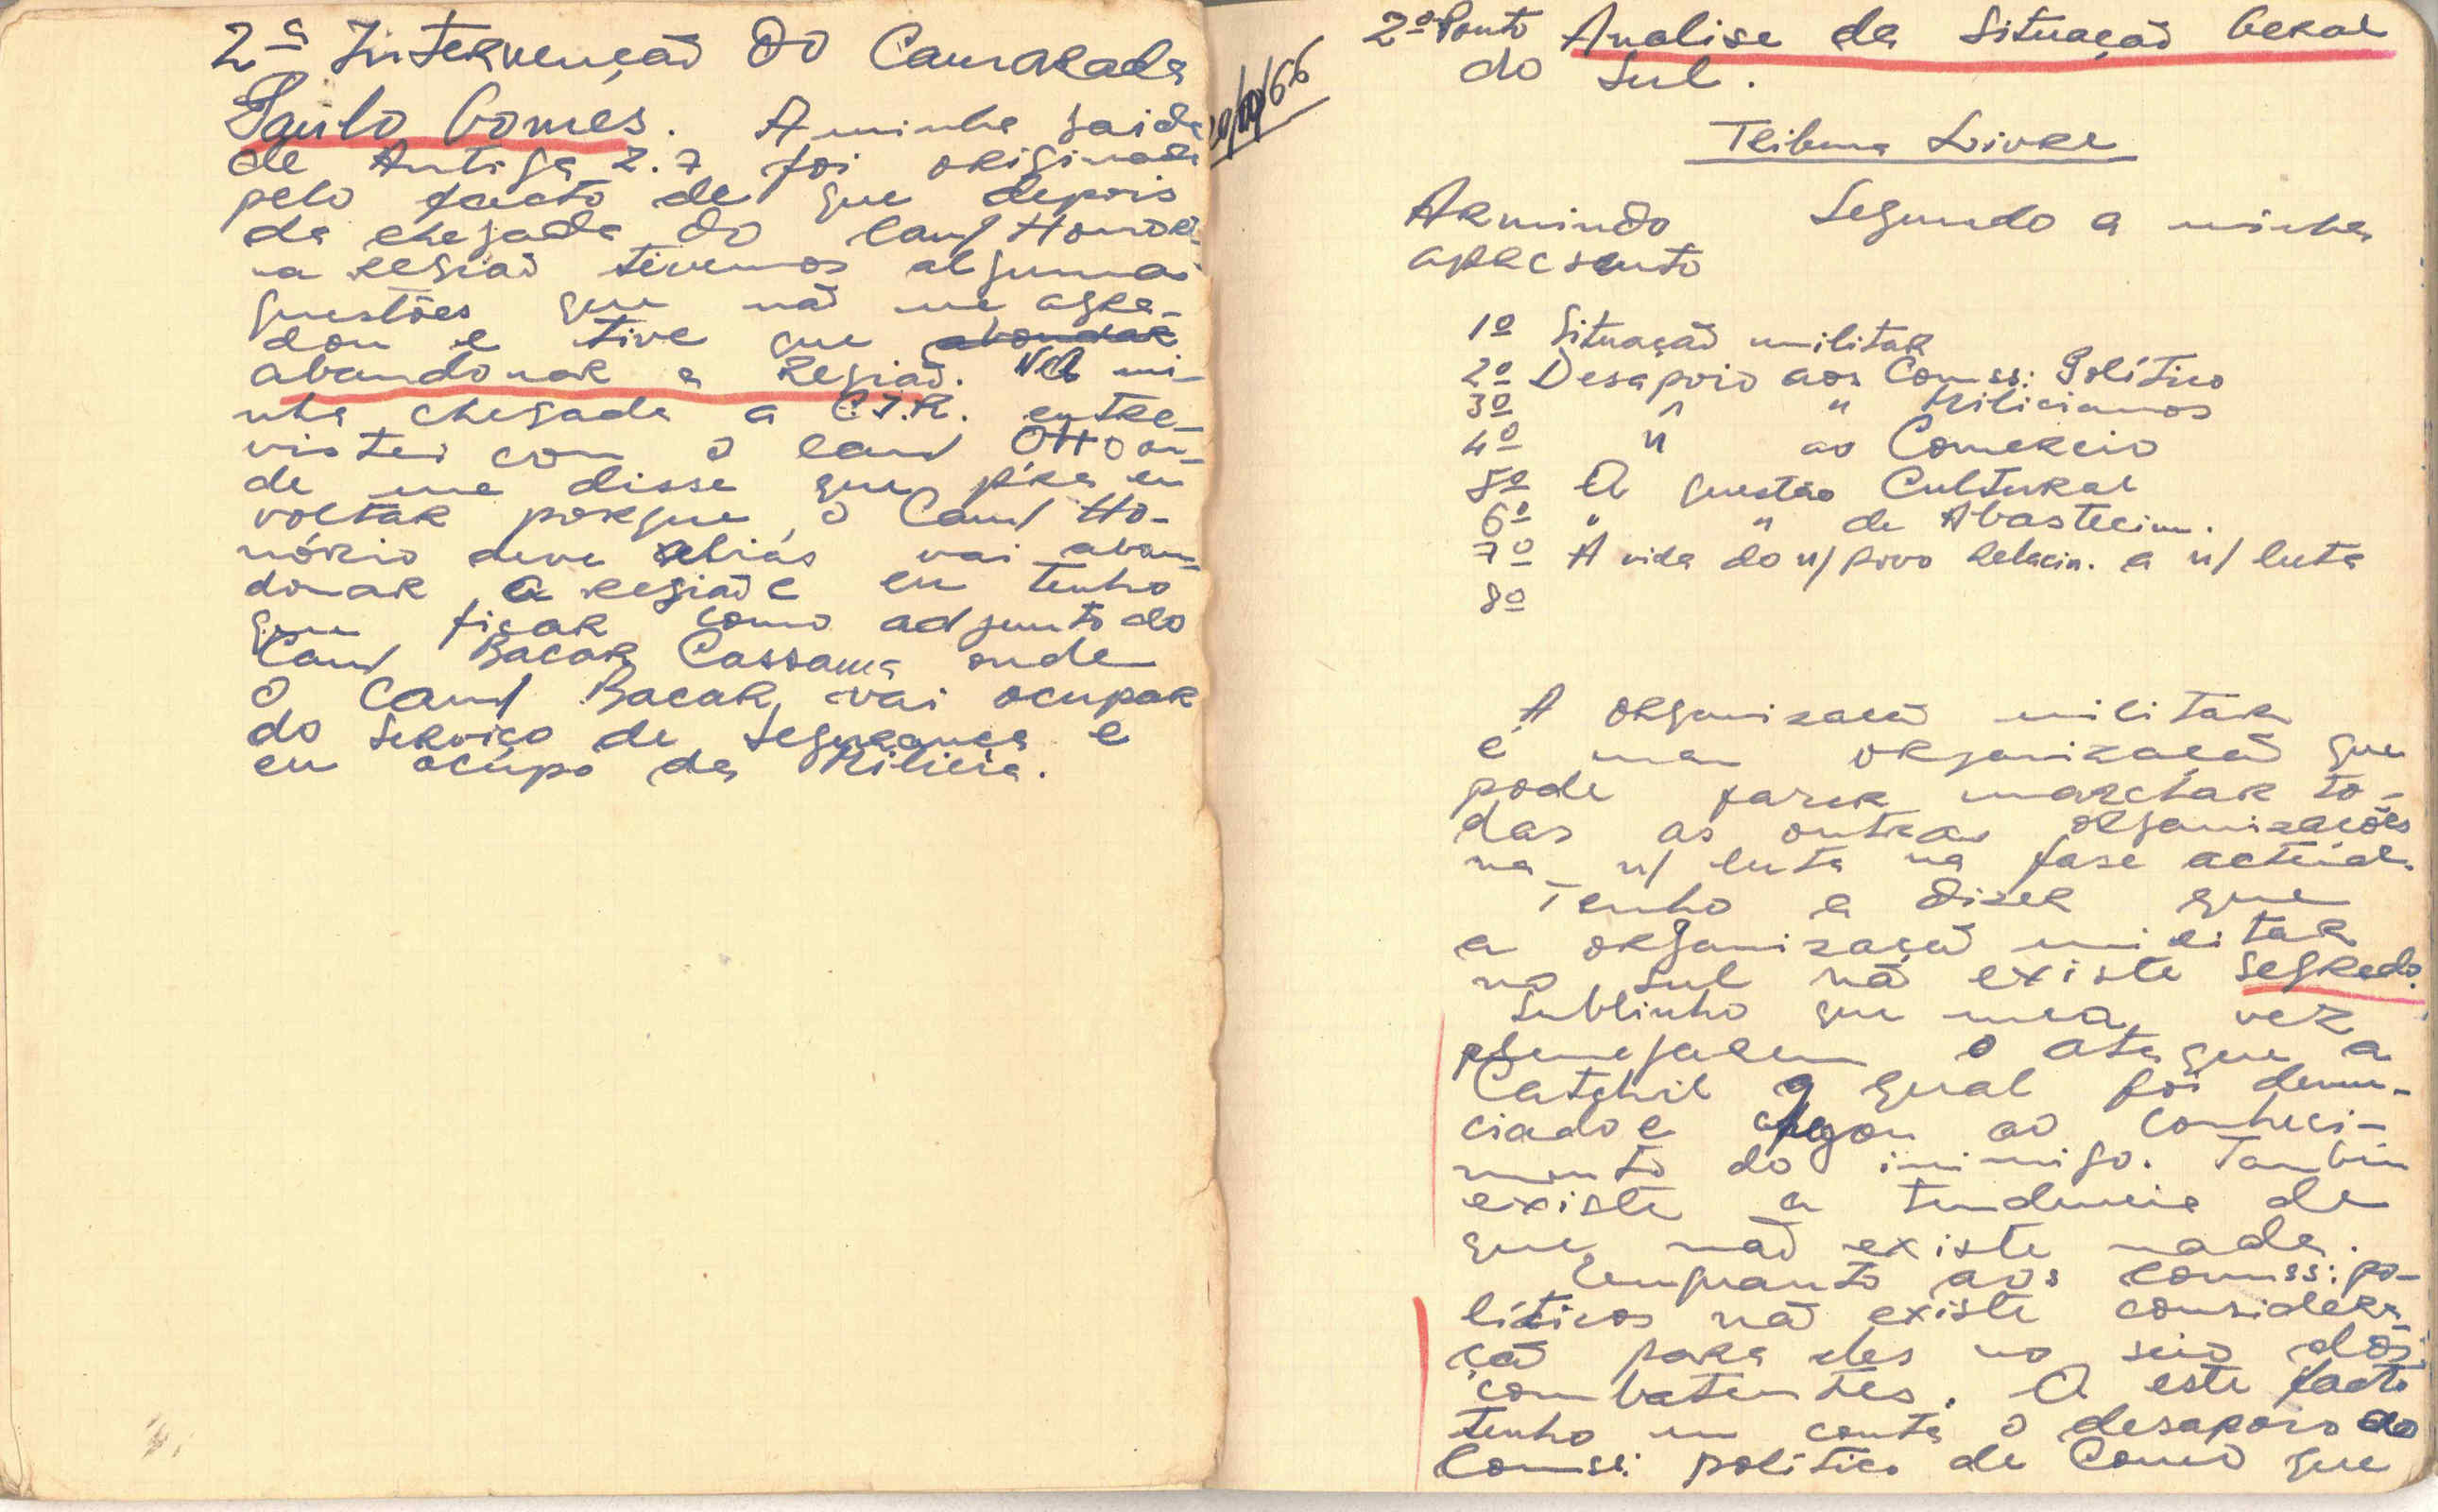 2ª Intervenção do Camarada
Paulo Gomes. A minha saida
de Antiga Z.7 foi originada
pelo facto de que depois
da chegada do Cam/ Honór.
na região tivemos algumas
questões que não me agra-
dou e tive que abondar
abandonar a Região. Na mi-
nha chegada a C.I.R. entre-
vistei com o cam/ Otto on-
de me disse que p/ra eu
voltar porque o Cam/ Ho-
nório deve aliás vai aban-
donar a região e eu tenho
que ficar como adjunto do
Cam/ Bacar Cassamá onde
o Cam/ Bacar vai ocupar
do serviço de segurança e
eu ocupo da Milicia.
/66
2º Ponto Analise da Situação Geral
do Sul.
Tribuna Livre
Armindo Segundo a minha
apresento
1º Situação militar
2º Desapoio aos Comss: Político
3º " " Milicianos
4º " ao Comercio
5º A questão Cultural
6º " " de Abastecim.
7º A vida do n/ povo relacin. a n/ luta
8º
A organização militar
é uma organização que
pode fazer marchar to-
das as outras organizações
na n/ luta na fase actual.
Tenho a dizer que
a organização militar
no Sul não existe segredo.
Sublinho que uma vez
planejarem o ataque a
Catchil o qual foi denun-
ciado e chegou ao conheci-
mento do inimigo. Também
existe a tendencia de
que não existe nada.
Enquanto aos comss: po-
líticos não existe considera-
ção para eles no seio dos
combatentes. A este facto
tenho em conta o desapoio do
Comss: politico de Como que